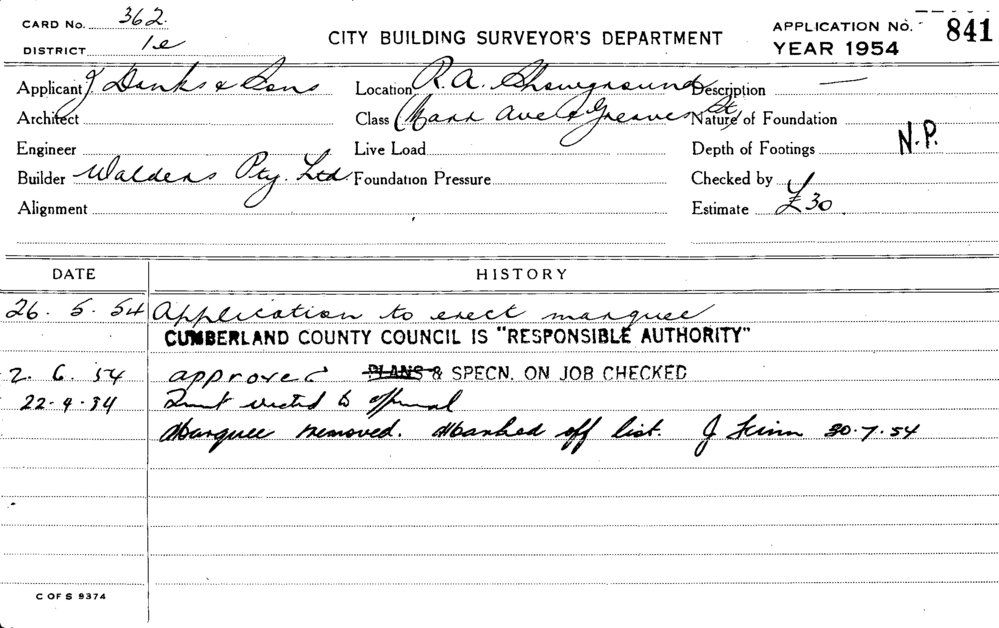 CARD No. 362.
DISTRICT 1e
CITY BUILDING SURVEYOR'S DEPARTMENT
APPLICATION No. 841
YEAR 1954
Applicant J Danks & Sons Location R.A. Showground Description —
Architect Class (Mark Ave & Greaves Nature of Foundation
Engineer Live Load Depth of Footings N.P.
Builder Walders Pty. Ltd. Foundation Pressure Checked by
Alignment Estimate £30.
DATE HISTORY
26. 5. 54 Application to erect marquee
CUMBERLAND COUNTY COUNCIL IS "RESPONSIBLE AUTHORITY"
2. 6. 54 approved PLANS & SPECN. ON JOB CHECKED
Marquee removed. Marked off list. J Finn 30-7-54
C OF S 9374